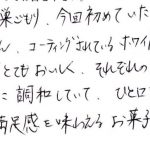 巣ごもり、今回初めていた
ん、コーティングされているホワイ
とてもおいしく、それぞれの
に調和していて、ひと口
満足感を味わえるお菓子